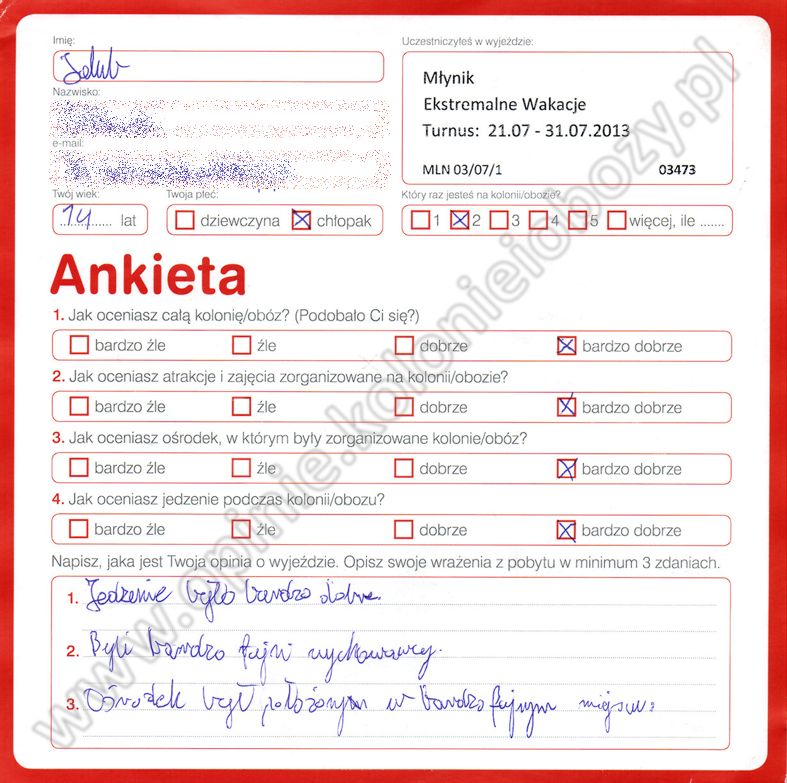 Imię:
Jakub
Uczestniczyłeś w wyjeździe:
Młynik
Ekstremalne Wakacje
Turnus: 21.07 - 31.07.2013
MLN 03/07/1 03473
Nazwisko:
e-mail:
Twój wiek:
14 lat
Twoja płeć:
dziewczyna chłopak
Który raz jesteś na kolonii/obozie?
1 2 3 4 5 więcej, ile .......
Ankieta
1. Jak oceniasz całą kolonię/obóz? (Podobało Ci się?)
bardzo źle źle dobrze bardzo dobrze
2. Jak oceniasz atrakcje i zajęcia zorganizowane na kolonii/obozie?
bardzo źle źle dobrze bardzo dobrze
3. Jak oceniasz ośrodek, w którym były zorganizowane kolonie/obóz?
bardzo źle źle dobrze bardzo dobrze
4. Jak oceniasz jedzenie podczas kolonii/obozu?
bardzo źle źle dobrze bardzo dobrze
Napisz, jaka jest Twoja opinia o wyjeździe. Opisz swoje wrażenia z pobytu w minimum 3 zdaniach.
1. Jedzenie było bardzo dobre.
2. Byli bardzo fajni wychowawcy.
3. Ośrodek był położonym w bardzo fajnym miejscu.
www.opinie.kolonieiobozy.pl